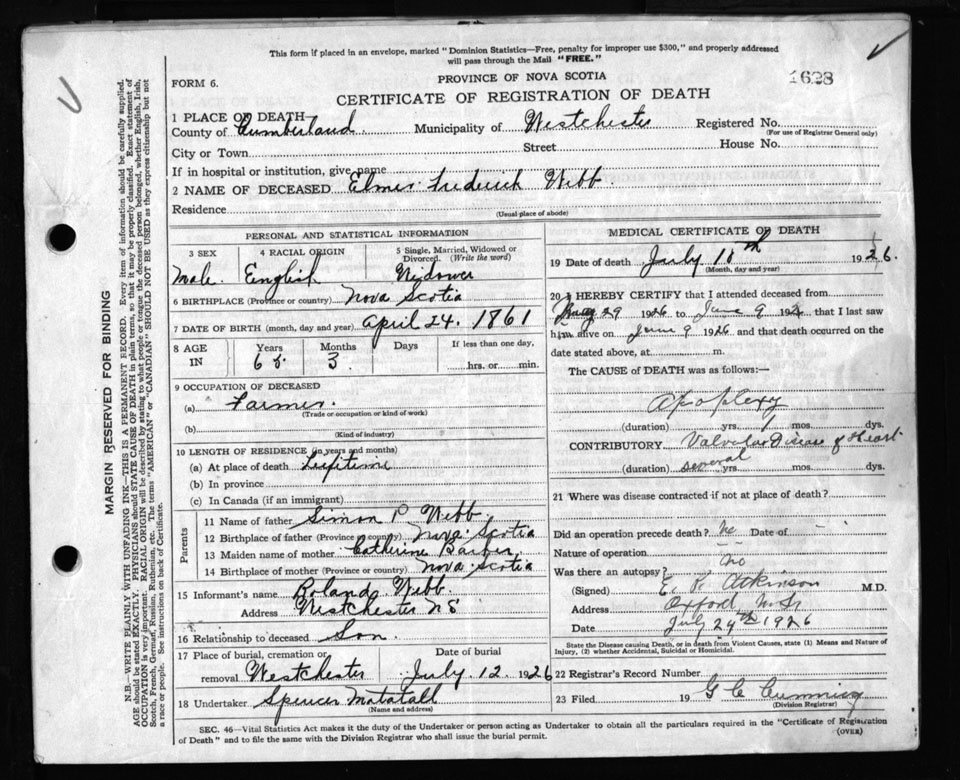 This form if placed in an envelope, marked "Dominion Statistics—Free, penalty for improper use $300," and properly addressed
will pass through the Mail "FREE."
1628
PROVINCE OF NOVA SCOTIA
FORM 6.
CERTIFICATE OF REGISTRATION OF DEATH
1 PLACE OF DEATH
County of Cumberland Municipality of Westchester Registered No.
(For use of Registrar General only)
City or Town Street House No.
If in hospital or institution, give name
2 NAME OF DECEASED Elmer Frederick Webb
Residence
(Usual place of abode)
PERSONAL AND STATISTICAL INFORMATION
3 SEX 4 RACIAL ORIGIN 5 Single, Married, Widowed or Divorced. (Write the word)
Male. English Widower
6 BIRTHPLACE (Province or country) Nova Scotia
7 DATE OF BIRTH (month, day and year) April 24. 1861
8 AGE IN Years Months Days If less than one day,
65. 3 hrs. or min.
9 OCCUPATION OF DECEASED
(a) Farmer.
(Trade or occupation or kind of work)
(b)
(Kind of industry)
10 LENGTH OF RESIDENCE (in years and months)
(a) At place of death Lifetime
(b) In province
(c) In Canada (if an immigrant)
Parents
11 Name of father Simon P Webb
12 Birthplace of father (Province or country) Nova Scotia
13 Maiden name of mother Catherine Barber
14 Birthplace of mother (Province or country) Nova Scotia
15 Informant's name Roland Webb
Address Westchester N S
16 Relationship to deceased Son.
17 Place of burial, cremation or removal Date of burial
Westchester July 12. 1926
18 Undertaker Spencer Matatall
(Name and address)
MEDICAL CERTIFICATE OF DEATH
19 Date of death July 10th 1926.
(Month, day and year)
20 I HEREBY CERTIFY that I attended deceased from
May 29 1926 to June 9 192 that I last saw
him alive on June 9 1926 and that death occurred on
date stated above, at m.
The CAUSE of DEATH was as follows:—
Apoplexy
(duration) yrs. 1 mos. dys.
CONTRIBUTORY Valvular Disease of Heart
(duration) several yrs. mos. dys.
21 Where was disease contracted if not at place of death?
Did an operation precede death? No Date of
Nature of operation
Was there an autopsy? no
(Signed) Atkinson M D.
Address Oxford N.S.
Date July 24th 1926
State the Disease causing Death, or in death from Violent Causes, state (1) Means and Nature of
Injury, (2) whether Accidental, Suicidal or Homicidal.
22 Registrar's Record Number
23 Filed 19 G C Cumming
(Division Registrar)
SEC. 46—Vital Statistics Act makes it the duty of the Undertaker or person acting as Undertaker to obtain all the particulars required in the "Certificate of Registration
of Death" and to file the same with the Division Registrar who shall issue the burial permit.
(OVER)
MARGIN RESERVED FOR BINDING
N.B.—WRITE PLAINLY WITH UNFADING INK—THIS IS A PERMANENT RECORD. Every item of information should be carefully supplied.
AGE should be stated EXACTLY. PHYSICIANS should STATE CAUSE OF DEATH in plain terms, so that it may be properly classified. Exact statement of
OCCUPATION is very important. RACIAL ORIGIN will be described by stating to what people or tongue the deceased person belonged, whether English, Irish,
Scotch, French, German, Russian, Ruthenian, etc. The terms "AMERICAN" or "CANADIAN" SHOULD NOT BE USED as they express citizenship but not
a race or people. See instructions on back of Certificate.